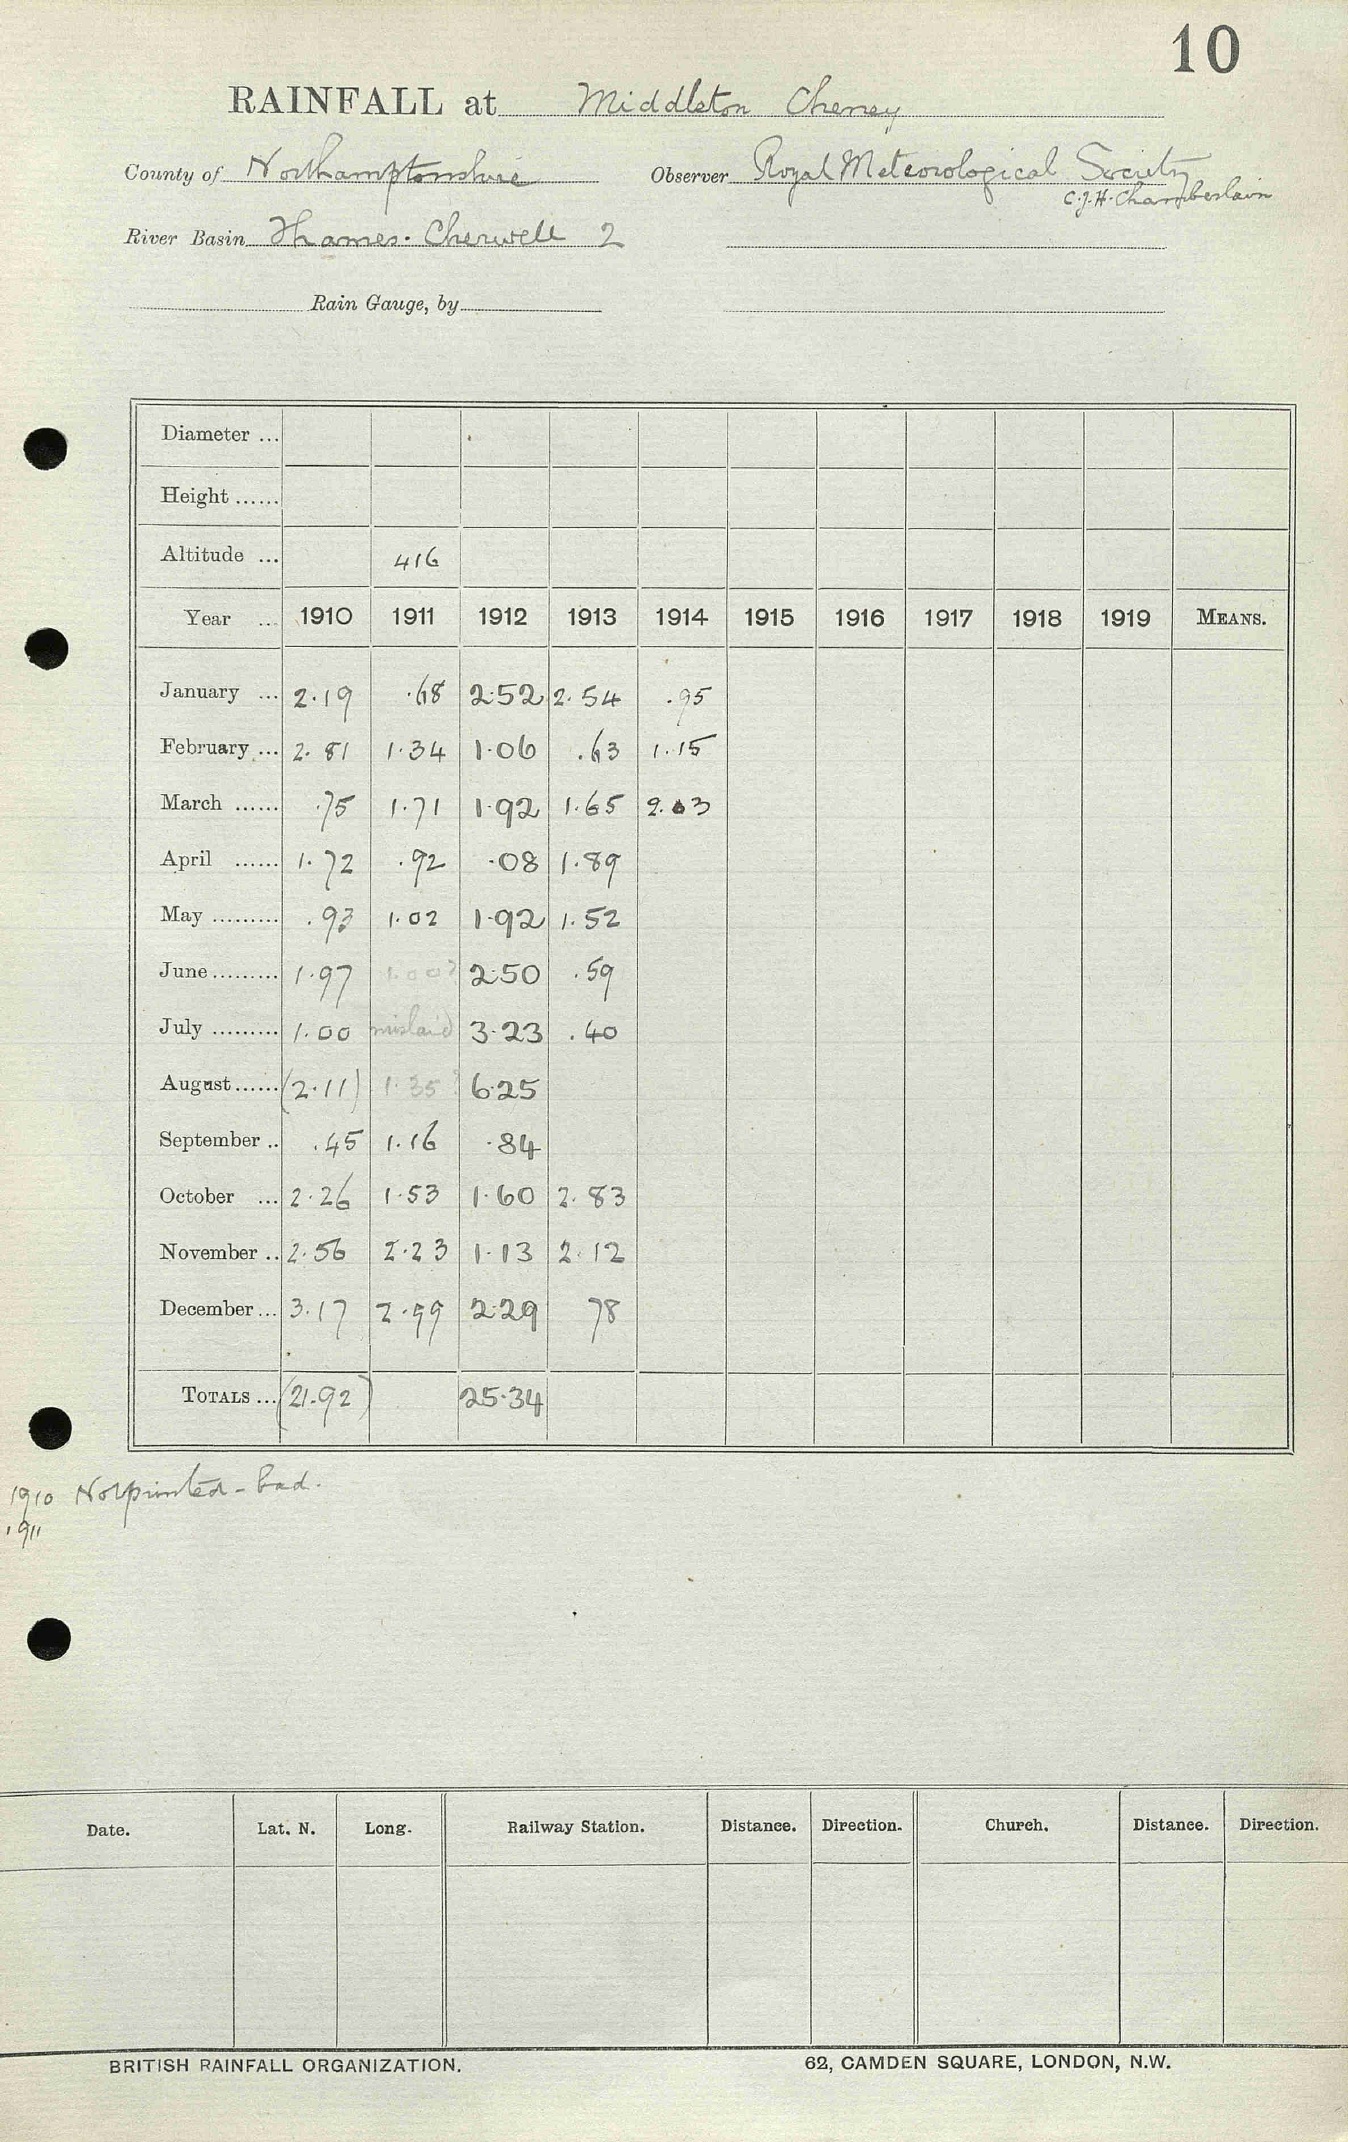 10
RAINFALL at Middleton Cheney
County of Northamptonshire Observer Royal Meteorological Society
C.J.H. Chamberlain
River Basin Thames. Cherwell 2
Rain Gauge, by
Diameter ...
Height ......
Altitude ... 416
Year ... 1910 1911 1912 1913 1914 1915 1916 1917 1918 1919 MEANS.
January ... 2.19 .68 2.52 2.54 .95
February ... 2.81 1.34 1.06 .63 1.15
March ...... .75 1.71 1.92 1.65 2.03
April ...... 1.72 .92 .08 1.89
May ......... .93 1.02 1.92 1.52
June ......... 1.97 1.00? 2.50 .59
July ......... 1.00 mislaid 3.23 .40
August ...... (2.11) 1.35? 6.25
September .. .45 1.16 .84
October ... 2.26 1.53 1.60 2.83
November .. 2.56 2.23 1.13 2.12
December ... 3.17 2.99 2.29 78
TOTALS ... (21.92) 25.34
1910 Not printed - bad.
1911
Date. Lat. N. Long. Railway Station. Distance. Direction. Church. Distance. Direction.
BRITISH RAINFALL ORGANIZATION. 62, CAMDEN SQUARE, LONDON, N.W.